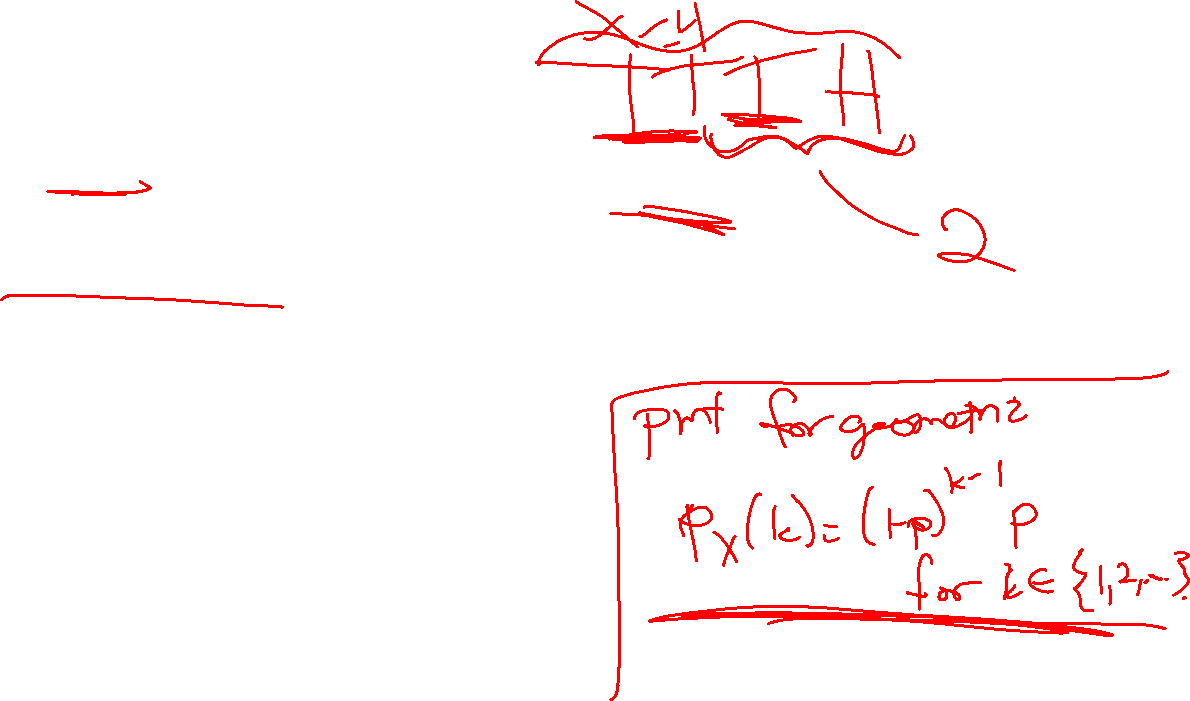 X=4
T T T H
2
pmf for geometric
p_X(k) = (1-p)^{k-1} p
for k ∈ {1,2,...}